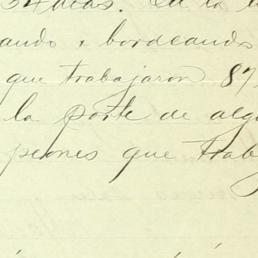 34 dias. En la
ando & bordeando
que trabajaron 87
la parte de alg
peones que trab